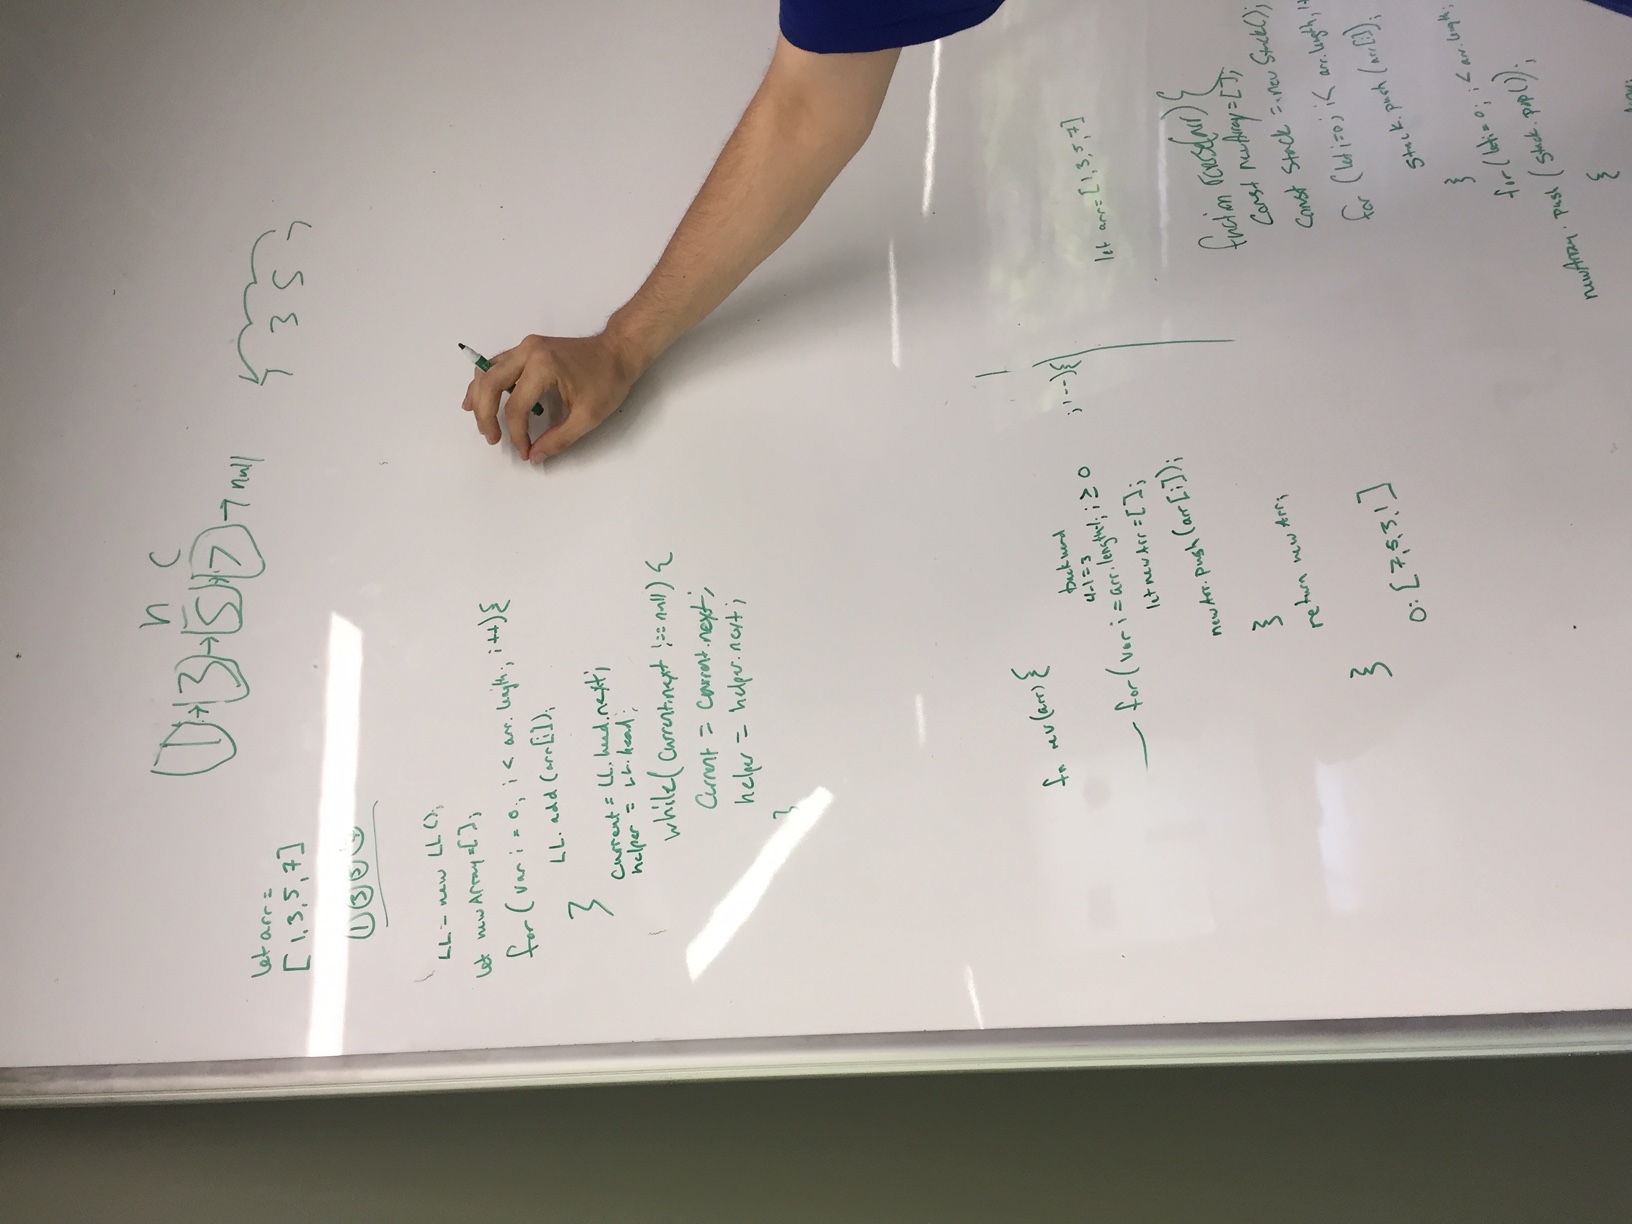 h c
1 → 3 → 5 → 7 → null
let arr =
[1,3,5,7]
1 3 5 7
1 3 5 7
LL = new LL();
let newArray=[];
for(var i = 0; i < arr.length; i++){
LL.add(arr[i]);
}
current = LL.head.next;
helper = LL.head;
while(current.next !== null) {
Current = current.next;
helper = helper.next;
}
fn rev(arr){
backward
4-1=3
for(var i = arr.length-1; i ≥ 0 ; i--){
let newArr = [];
newArr.push(arr[i]);
}
return newArr;
}
O: [7,5,3,1]
let arr=[1,3,5,7]
function reverse(arr){
Const newArray=[];
Const Stack = new Stack();
for (let i=0; i< arr.length; i+
Stack.push(arr[i]);
}
for(let i=0; i< arr.length;
newArray.push(Stack.pop());
{